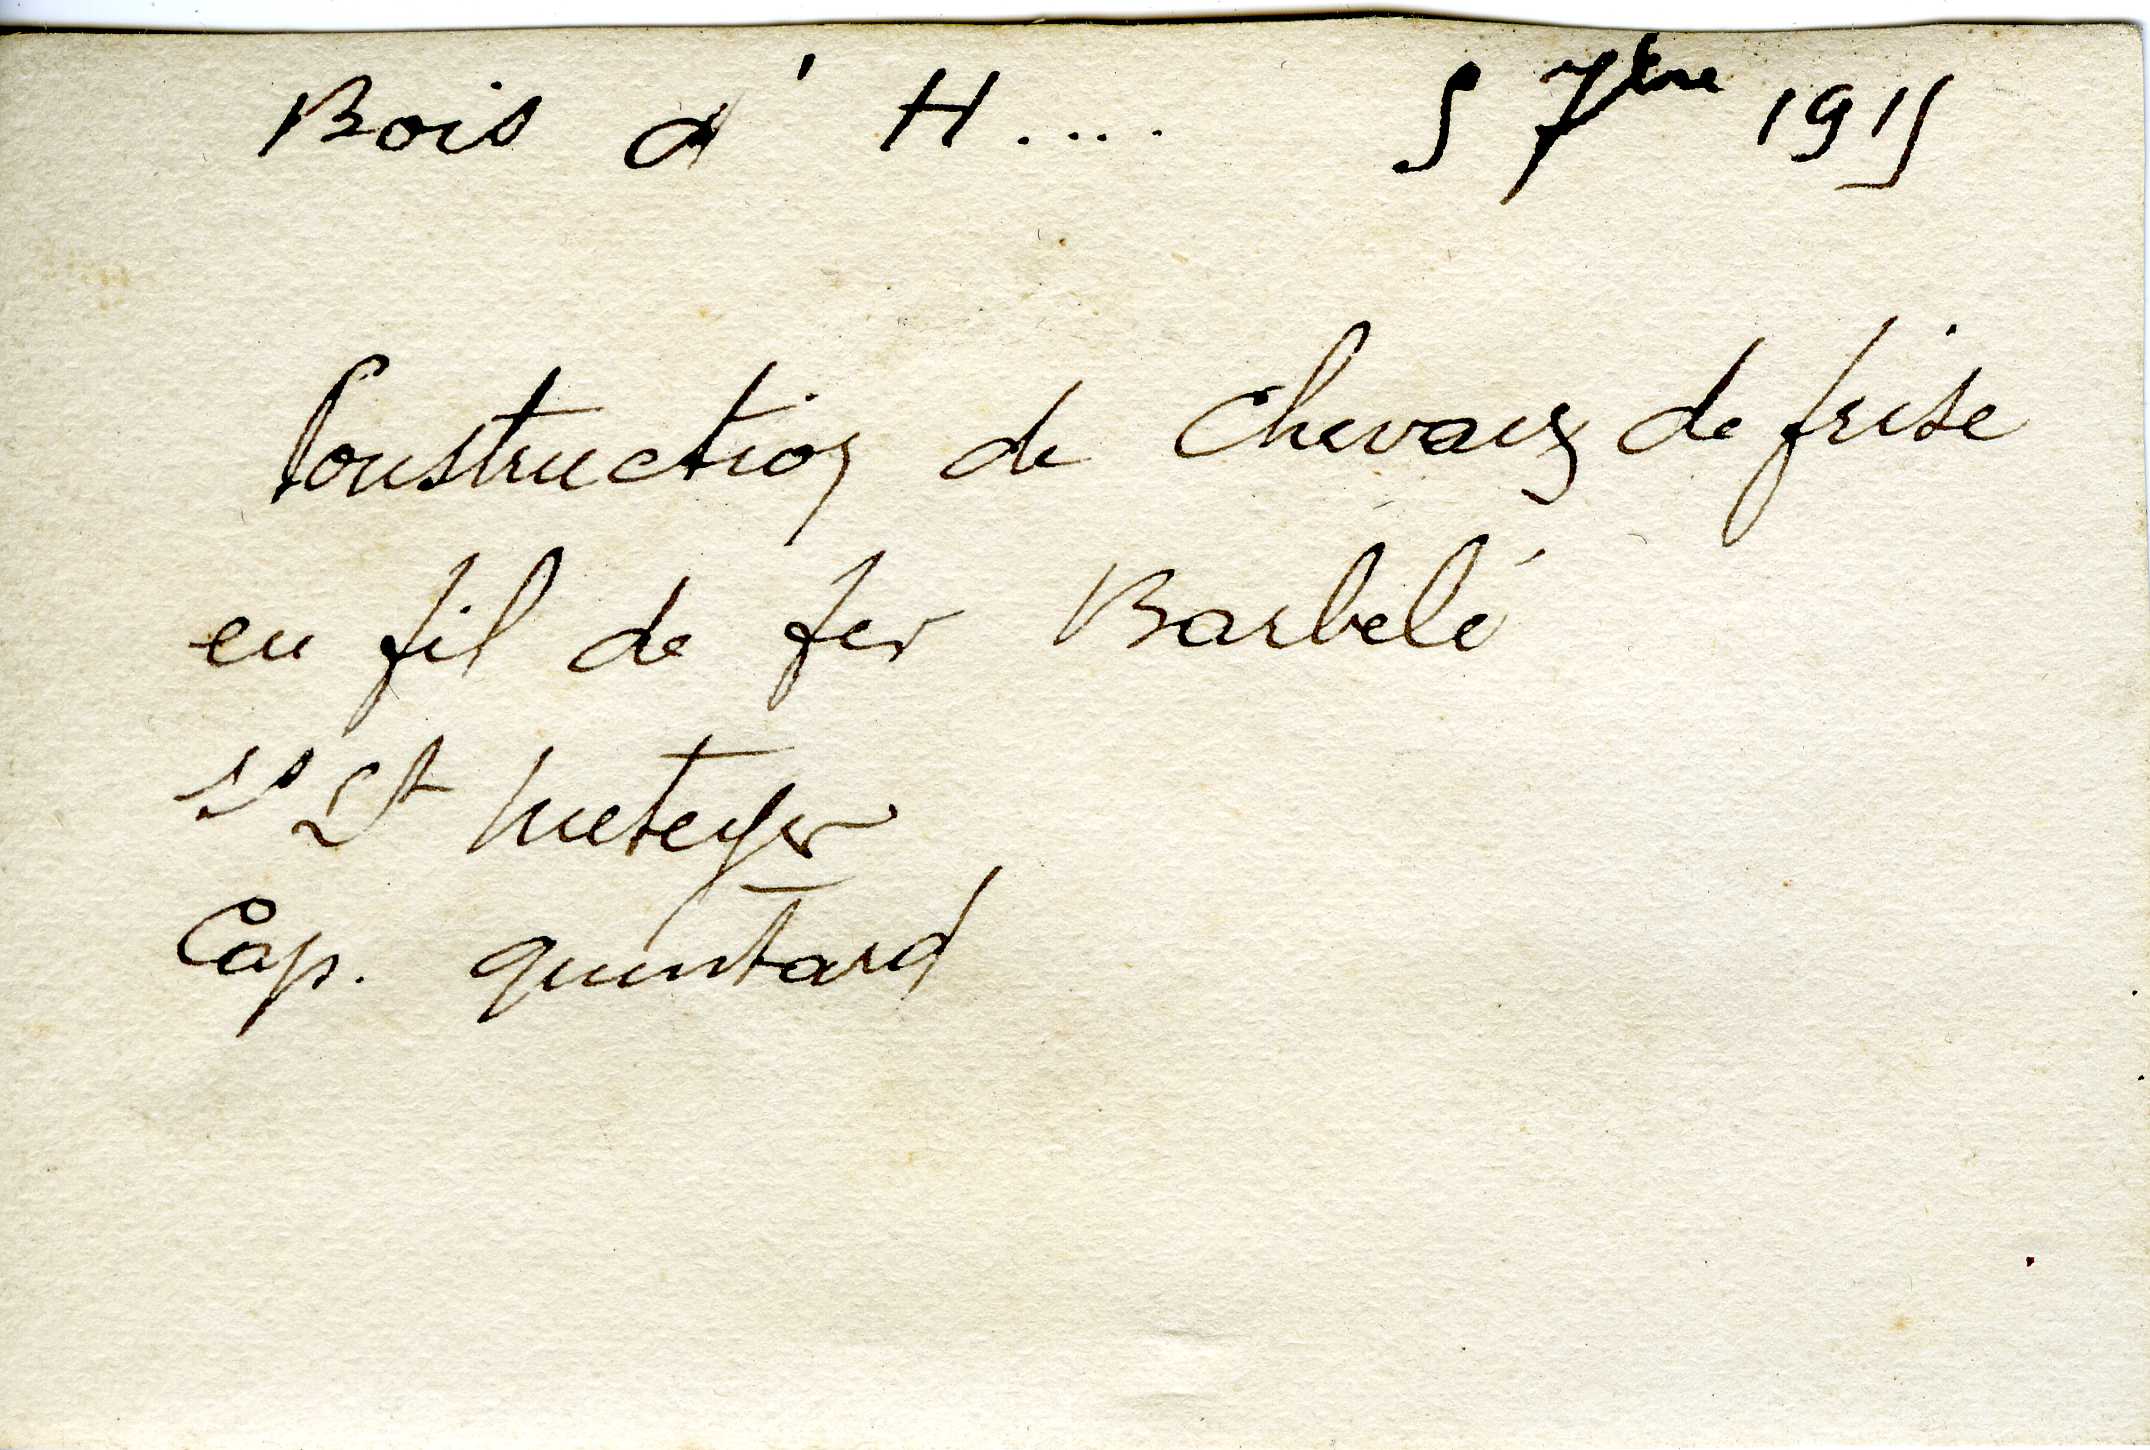 Bois d' H.... 5 7bre 1915
Construction de chevaux de frise
en fil de fer Barbelé
Ss Lt Meteyer
Cap. quintard